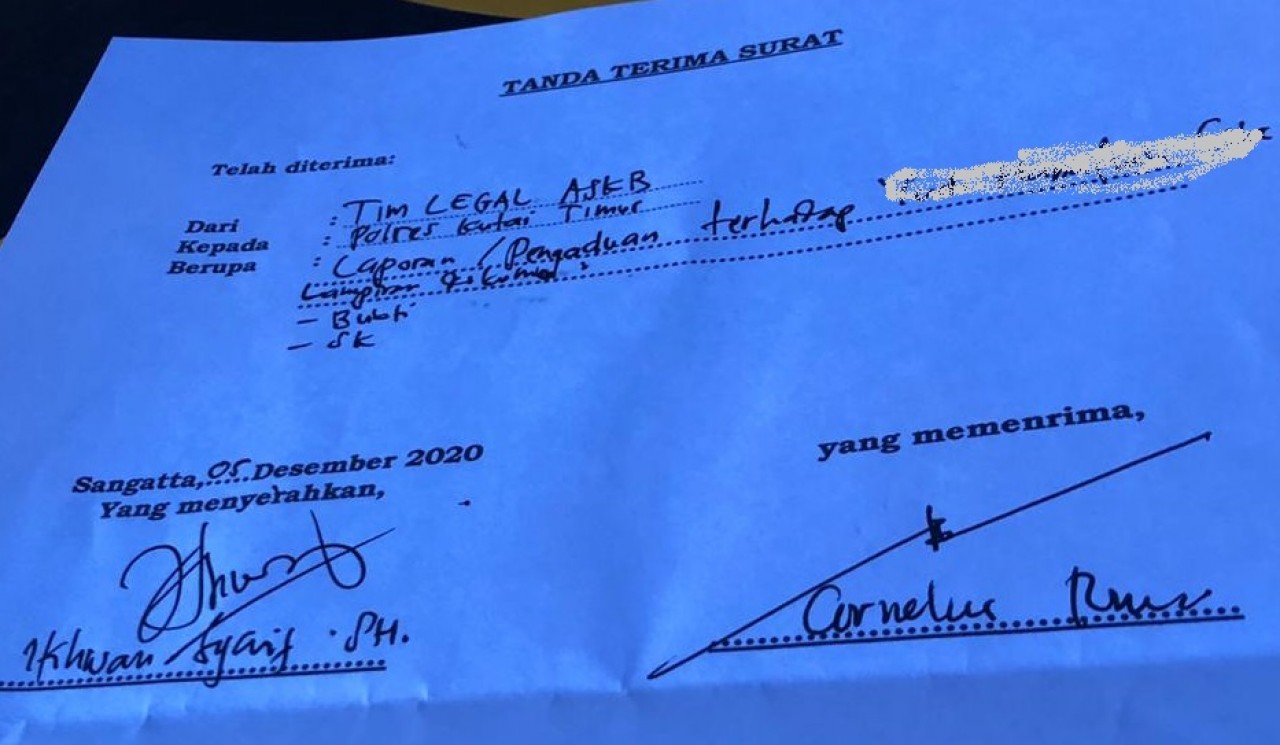 TANDA TERIMA SURAT
Telah diterima:
Dari : TIM LEGAL ASKB
Kepada : Polres Kutai Timur
Berupa : Laporan / Pengaduan terhadap
Lampiran
- Bukti
- SK
Sangatta, 05 Desember 2020
Yang menyerahkan,
yang memenrima,
Ikhwan Syarif .SH.
Cornelus